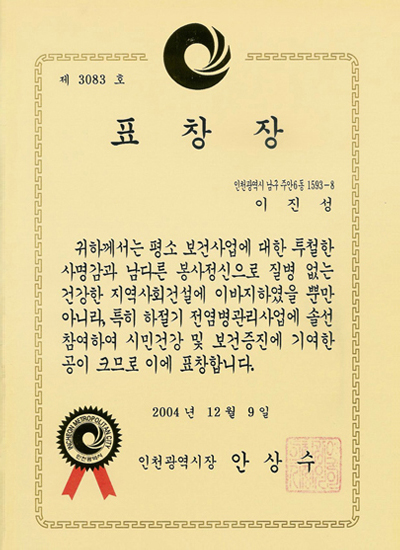 제 3083 호
표 창 장
인천광역시 남구 주안6동 1593-8
이 진 성
귀하께서는 평소 보건사업에 대한 투철한
사명감과 남다른 봉사정신으로 질병 없는
건강한 지역사회건설에 이바지하였을 뿐만
아니라, 특히 하절기 전염병관리사업에 솔선
참여하여 시민건강 및 보건증진에 기여한
공이 크므로 이에 표창합니다.
2004 년 12 월 9 일
INCHEON METROPOLITAN CITY
인천광역시
인천광역시장 안 상 수